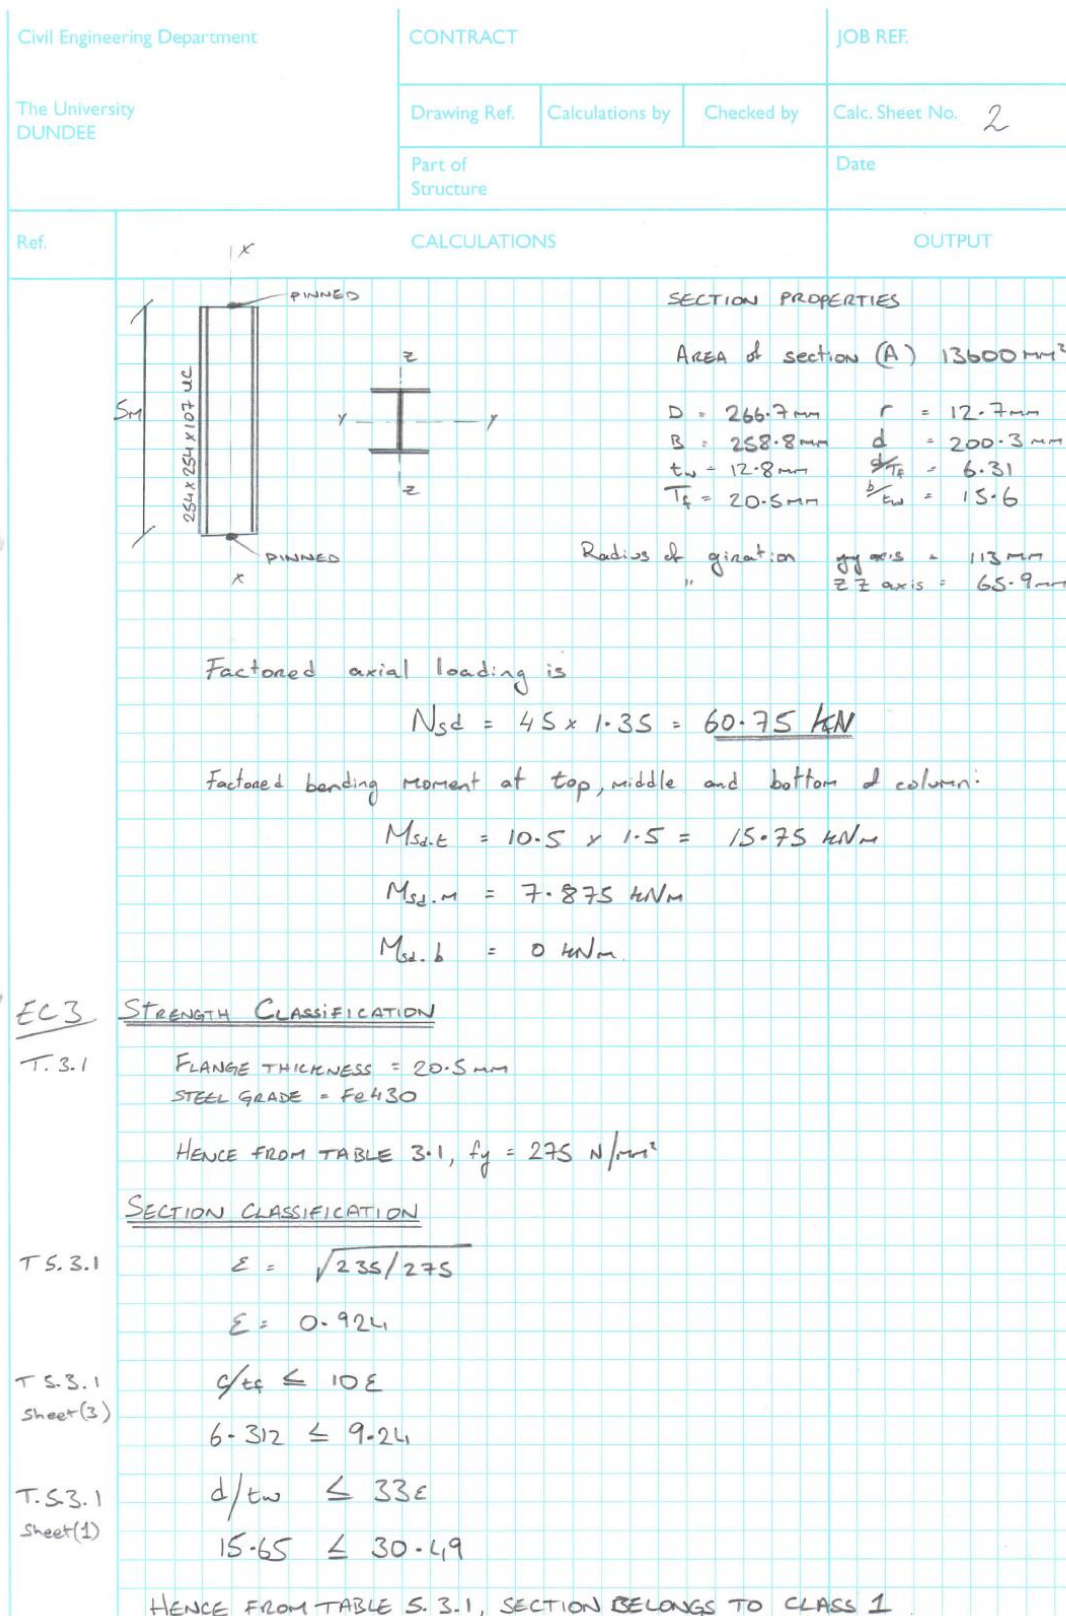 Civil Engineering Department
The University
DUNDEE
CONTRACT
JOB REF.
Drawing Ref.
Calculations by
Checked by
Calc. Sheet No. 2
Part of
Structure
Date
Ref.
CALCULATIONS
OUTPUT
x
PINNED
5m
254 x 254 x 107 UC
z
y
y
z
PINNED
x
SECTION PROPERTIES
AREA of section (A) 13600 mm²
D = 266.7mm r = 12.7mm
B = 258.8mm d = 200.3mm
tw = 12.8mm d/Tf = 6.31
Tf = 20.5mm b/tw = 15.6
Radius of giration yy axis = 113mm
" zz axis = 65.9mm
Factored axial loading is
Nsd = 45 x 1.35 = 60.75 kN
Factored bending moment at top, middle and bottom of column:
Msd.t = 10.5 x 1.5 = 15.75 kNm
Msd.m = 7.875 kNm
Msd.b = 0 kNm.
EC3 STRENGTH CLASSIFICATION
T.3.1 FLANGE THICKNESS = 20.5mm
STEEL GRADE = Fe430
HENCE FROM TABLE 3.1, fy = 275 N/mm²
SECTION CLASSIFICATION
T 5.3.1 ε = √235/275
ε = 0.924
T 5.3.1 c/tf ≤ 10ε
Sheet(3)
6.312 ≤ 9.24
T.5.3.1 d/tw ≤ 33ε
Sheet(1)
15.65 ≤ 30.49
HENCE FROM TABLE 5.3.1, SECTION BELONGS TO CLASS 1